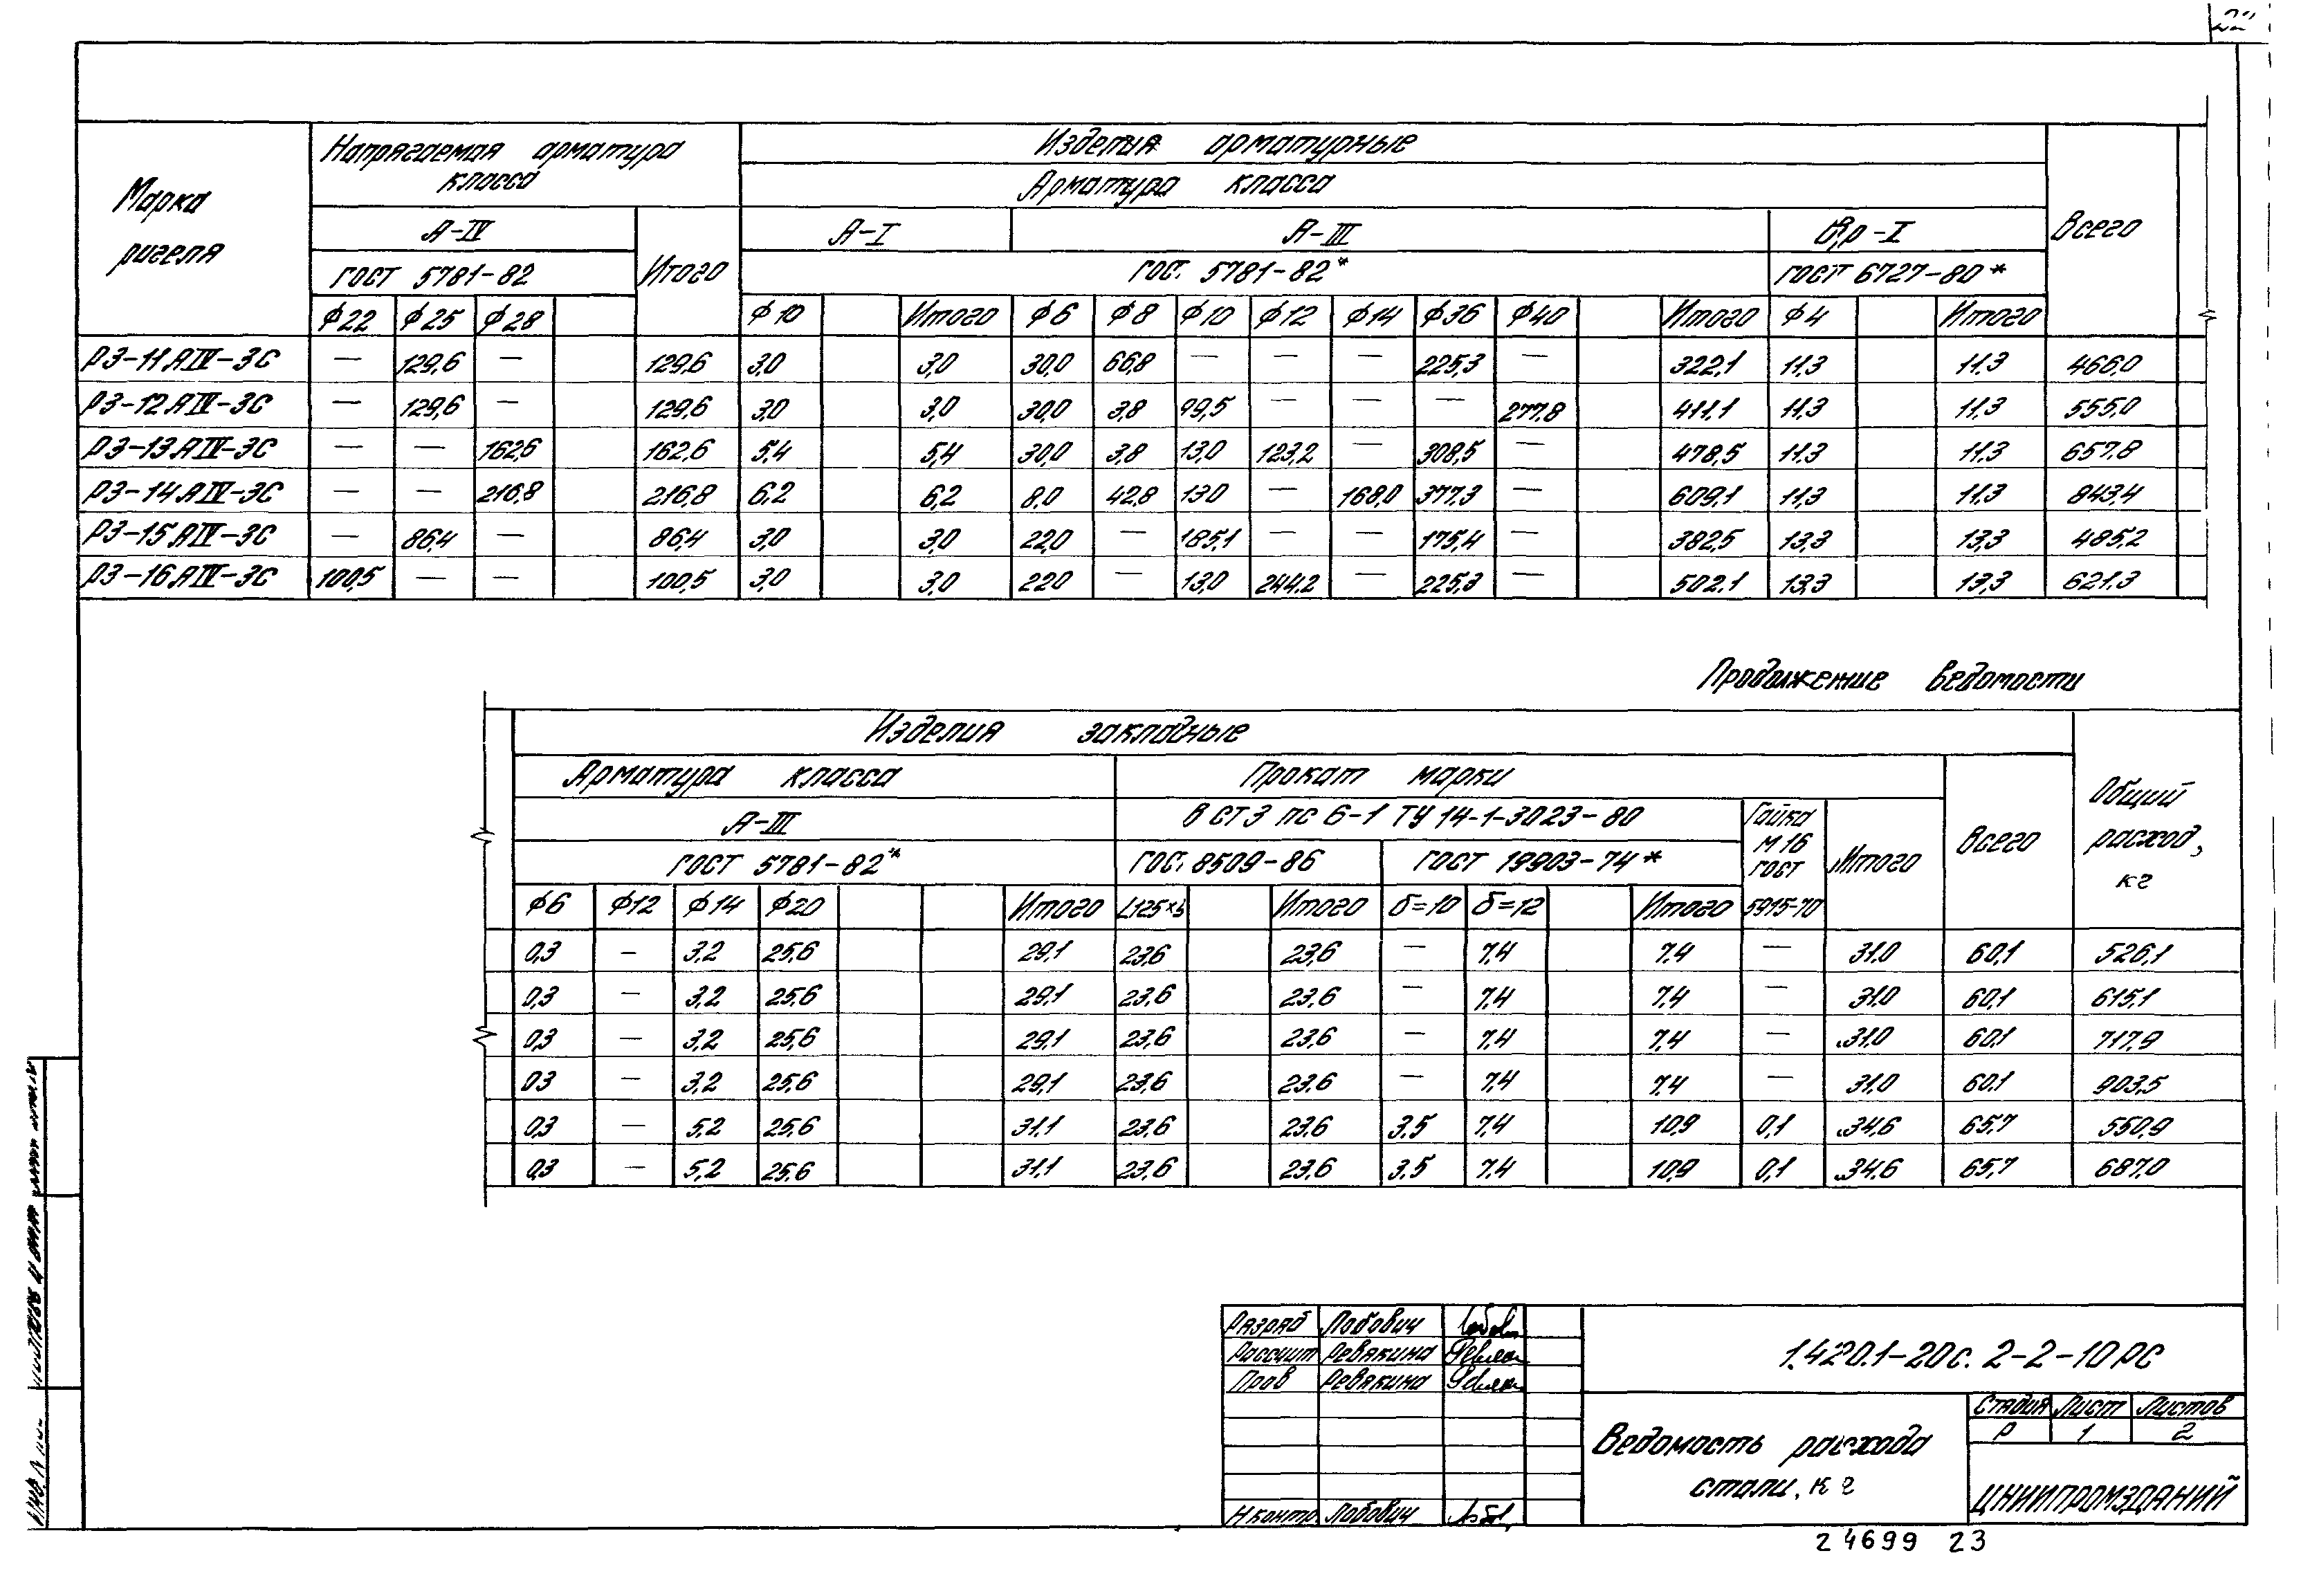 Марка ригеля
Напрягаемая арматура класса
Изделия арматурные
Арматура класса
Всего
А-IV
Итого
А-I
А-III
Вр-I
ГОСТ 5781-82
ГОСТ 5781-82*
ГОСТ 6727-80*
ф22 ф25 ф28 ф10 Итого ф6 ф8 ф10 ф12 ф14 ф36 ф40 Итого ф4 Итого
Р3-11АIV-3С — 129,6 — 129,6 3,0 3,0 30,0 66,8 — — — 225,3 — 322,1 11,3 11,3 466,0
Р3-12АIV-3С — 129,6 — 129,6 3,0 3,0 30,0 3,8 99,5 — — — 277,8 411,1 11,3 11,3 555,0
Р3-13АIV-3С — — 162,6 162,6 5,4 5,4 30,0 3,8 13,0 123,2 — 308,5 — 478,5 11,3 11,3 657,8
Р3-14АIV-3С — — 216,8 216,8 6,2 6,2 8,0 42,8 13,0 — 168,0 377,3 — 609,1 11,3 11,3 843,4
Р3-15АIV-3С — 86,4 — 86,4 3,0 3,0 22,0 — 185,1 — — 175,4 — 382,5 13,3 13,3 485,2
Р3-16АIV-3С 100,5 — — 100,5 3,0 3,0 22,0 — 13,0 244,2 — 225,3 — 502,1 13,3 13,3 621,3
Продолжение ведомости
Изделия закладные
Арматура класса
Прокат марки
Общий расход, кг
А-III
В СТ3 пс 6-1 ТУ 14-1-3023-80
Гайка М16 ГОСТ 5915-70
Итого
Всего
ГОСТ 5781-82*
ГОС. 8509-86
ГОСТ 19903-74*
ф6 ф12 ф14 ф20 Итого Итого δ=10 δ=12 Итого
0,3 — 3,2 25,6 29,1 23,6 23,6 — 7,4 7,4 — 31,0 60,1 526,1
0,3 — 3,2 25,6 29,1 23,6 23,6 — 7,4 7,4 — 31,0 60,1 615,1
0,3 — 3,2 25,6 29,1 23,6 23,6 — 7,4 7,4 — 31,0 60,1 717,9
0,3 — 3,2 25,6 29,1 23,6 23,6 — 7,4 7,4 — 31,0 60,1 903,5
0,3 — 5,2 25,6 31,1 23,6 23,6 3,5 7,4 10,9 0,1 34,6 65,7 550,9
0,3 — 5,2 25,6 31,1 23,6 23,6 3,5 7,4 10,9 0,1 34,6 65,7 687,0
Разраб Лобович
Рассчит Ревякина
Пров Ревякина
Н контр Лобович
1.420.1-20с. 2-2-10 РС
Ведомость расхода
стали, кг
Стадия Лист Листов
Р 1 2
ЦНИИПРОМЗДАНИЙ
24699 23